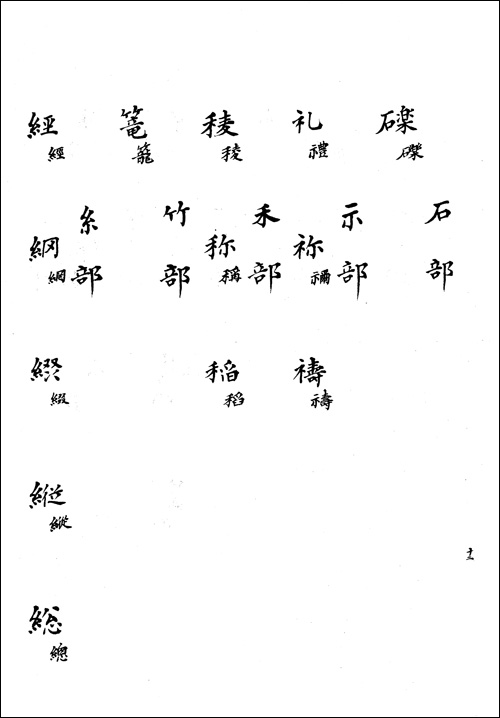 石部
礫
示部
礼
禮
祢
禰
祷
禱
禾部
稜
稜
称
稱
稲
稻
竹部
篭
籠
糸部
経
經
䋄
網
綴
綴
縦
縱
総
總